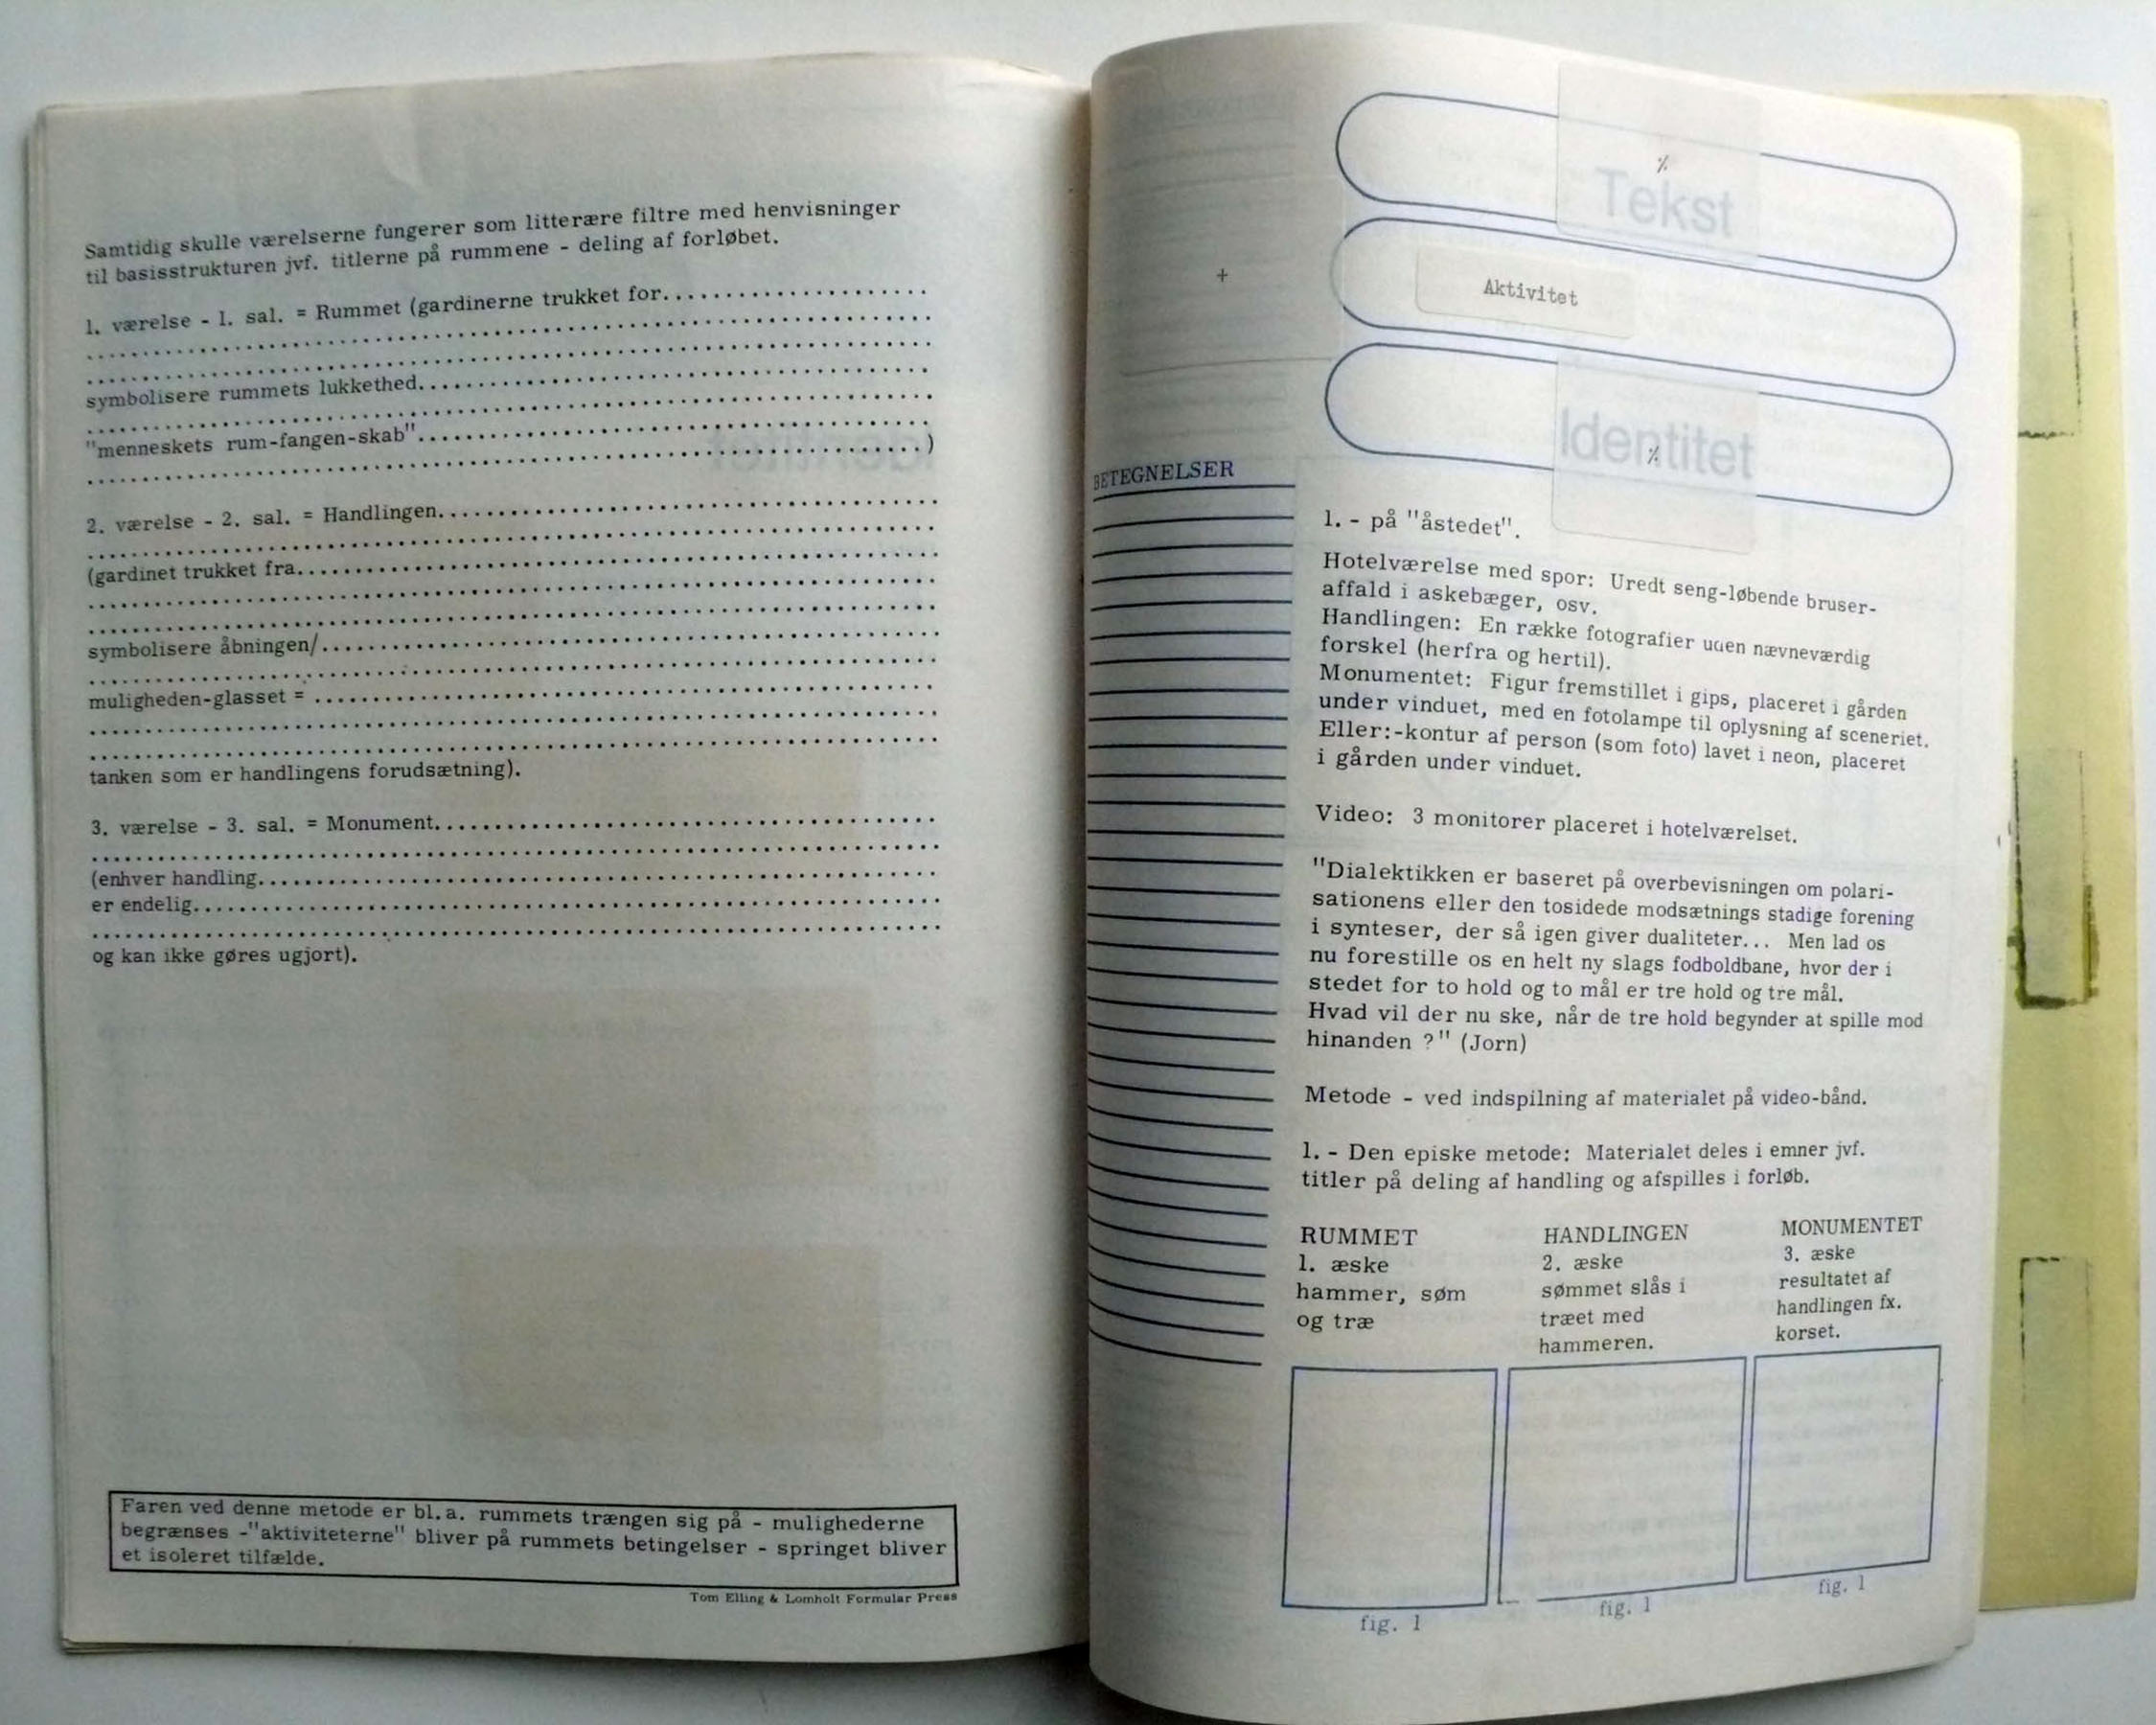 Samtidig skulle værelserne fungerer som litterære filtre med henvisninger
til basisstrukturen jvf. titlerne på rummene - deling af forløbet.
1. værelse - 1. sal. = Rummet (gardinerne trukket for....................
symbolisere rummets lukkethed....................
"menneskets rum-fangen-skab"....................
....................)
2. værelse - 2. sal. = Handlingen....................
(gardinet trukket fra....................
symbolisere åbningen/....................
muligheden-glasset = ....................
tanken som er handlingens forudsætning).
3. værelse - 3. sal. = Monument....................
(enhver handling....................
er endelig....................
og kan ikke gøres ugjort).
Faren ved denne metode er bl.a. rummets trængen sig på - mulighederne
begrænses -"aktiviteterne" bliver på rummets betingelser - springet bliver
et isoleret tilfælde.
Tom Elling & Lomholt Formular Press
%
Tekst
+
Aktivitet
Identitet
%
BETEGNELSER
1. - på "åstedet".
Hotelværelse med spor: Uredt seng-løbende bruser-
affald i askebæger, osv.
Handlingen: En række fotografier uden nævneværdig
forskel (herfra og hertil).
Monumentet: Figur fremstillet i gips, placeret i gården
under vinduet, med en fotolampe til oplysning af sceneriet.
Eller:-kontur af person (som foto) lavet i neon, placeret
i gården under vinduet.
Video: 3 monitorer placeret i hotelværelset.
"Dialektikken er baseret på overbevisningen om polari-
sationens eller den tosidede modsætnings stadige forening
i synteser, der så igen giver dualiteter... Men lad os
nu forestille os en helt ny slags fodboldbane, hvor der i
stedet for to hold og to mål er tre hold og tre mål.
Hvad vil der nu ske, når de tre hold begynder at spille mod
hinanden ?" (Jorn)
Metode - ved indspilning af materialet på video-bånd.
1. - Den episke metode: Materialet deles i emner jvf.
titler på deling af handling og afspilles i forløb.
RUMMET
1. æske
hammer, søm
og træ
HANDLINGEN
2. æske
sømmet slås i
træet med
hammeren.
MONUMENTET
3. æske
resultatet af
handlingen fx.
korset.
fig. 1
fig. 1
fig. 1